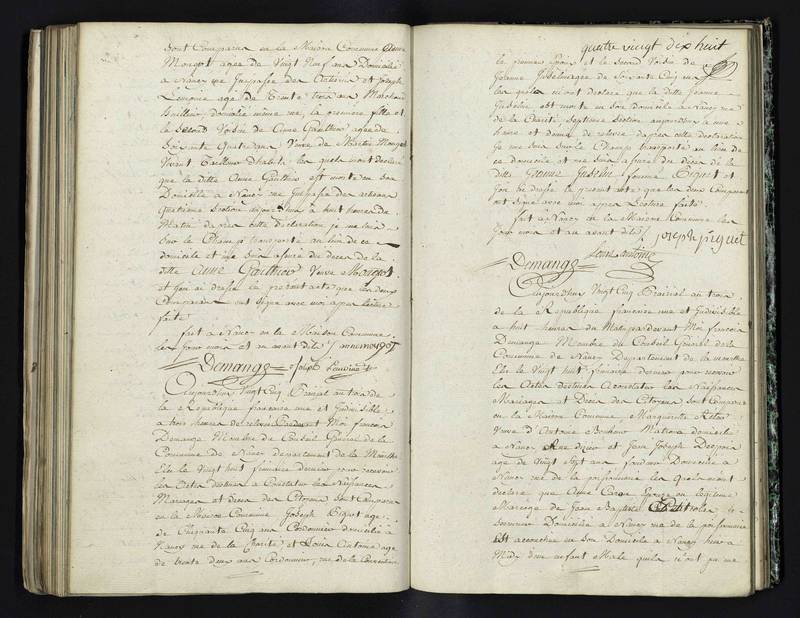 Sont Comparus en la Maison Commune Anne
Mongot agée de Vingt Neuf ans Domiciliée
a Nancy rue
agé de Trente trois ans Marchand
domicilié même rue, la première fille et
le Second Voisin de Anne Gauthier agée de
Soixante Quatre ans, Veuve de
Vivant Tailleur d'habits les quels m'ont déclaré
que la ditte Anne Gauthier est morte en son
Domicille a Nancy rue
quatrieme Section aujourd'hui a huit heures du
Matin d'après cette déclaration je me suis
Sur le Champ transporté au lieu de ce
domicile et me suis assuré du deces de la
ditte Anne Gauthier Veuve Mongot
et J'en ai dressé le present acte que les deux
Comparans ont Signé avec moi après lecture
faite
fait a Nancy en la Maison Commune
les Jour mois et an avant dits / anne mongot
Demange Joseph
Aujourdhui Vingt Cinq Prairial an trois de
la République francaise une et Indivisible
a trois heures de relevé Pardevant Moi francois
Demange Membre du Conseil Général de la
Commune de Nancy departement de la Meurthe
Elu le Vingt huit frimaire dernier pour recevoir
les Actes destinés a Constater les Naissances
Mariages et deces des Citoyens Sont Comparus
en la Maison Commune Joseph Piquot agé
de Cinquante Cinq ans Cordonnier domicilié a
Nancy rue de la Charité et Louis Antoine agé
de trente deux ans Cordonnier, rue de la
quatre vingt dix huit
le premier Epoux et le second Voisin de
Jeanne Josselin agée de Soixante Cinq ans
les quels m'ont déclaré que la ditte Jeanne
Josselin est morte en son domicile a Nancy rue
de la Charité, Septieme Section aujourdhui a une
heure et demie de relevée d'apres cette déclaration
Je me suis Sur le Champ transporté au lieu de
ce domicile et me suis assuré du deces de la
ditte Jeanne Josselin femme Piquot et
J'en ai dressé le present acte que les deux Comparans
ont Signé avec moi apres Lecture faite
fait a Nancy en la Maison Commune les
Jour mois et an avant dits / joseph piquet
Louis antoine
Demange
Aujourdhui Vingt Cinq Prairial an trois
de la République francaise une et Indivisible
a huit heures du Matin pardevant Moi francois
Demange Membre du Conseil Général de la
Commune de Nancy Departement de la Meurthe
Elu le Vingt huit frimaire dernier pour recevoir
les Actes destinés a Constater les Naissances
Mariages et Deces des Citoyens Sont Comparus
en la Maison Commune, Marguerite
Veuve d'Antoine Matrone domiciliée
a Nancy Rue et Jean Joseph
agé de Vingt Sept ans Domicilié a
Nancy rue de la poissonnerie les quels m'ont
déclaré que Anne Caron Epouse en légitime
Mariage de Jean Baptiste
Domicilié a Nancy rue de la poissonnerie
est accouchée en Son Domicile a Nancy hier a
Midi d'un enfant Male qu'ils n'ont pu me